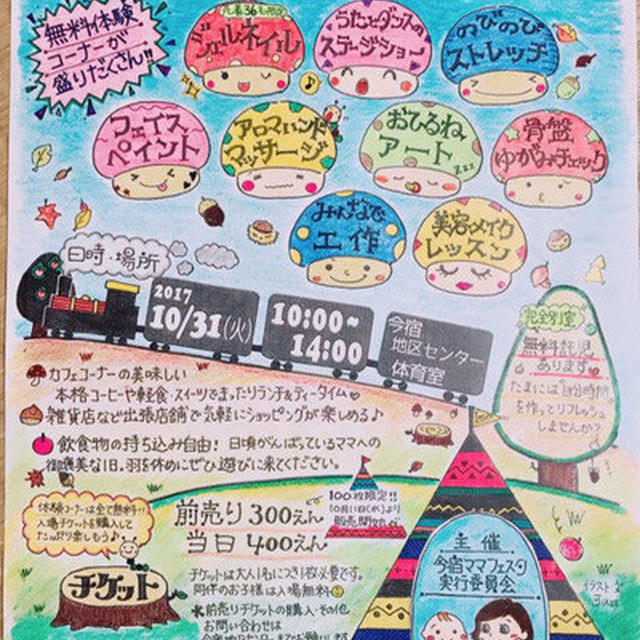 無料体験
コーナーが
盛りだくさん!!
先着36名限定
ジェルネイル
うたとダンスの
ステージショー
のびのび
ストレッチ
フェイス
ペイント
アロマハンド
マッサージ
おひるね
アート
zzz
骨盤
ゆがみチェック
みんなで
工作
美容・メイク
レッスン
日時・場所
2017
10/31(火)
10:00~
14:00
今宿
地区センター
体育室
完全別室
無料託児
あります
たまには"自分時間"
を作ってリフレッシュ
しませんか?
カフェコーナーの美味しい
本格コーヒーや軽食・スイーツでまったりランチ&ティータイム
雑貨店など出張店舗で気軽にショッピングが楽しめる♪
飲食物の持ち込み自由! 日頃がんばっているママへの
御褒美な1日。羽を休めにぜひ遊びに来てください。
体験コーナーは全て無料!!
入場チケットを購入して
たっぷり楽しもう♪
チケット
前売り300えん
当日 400えん
100枚限定!!
より
販売開始
チケットは大人1名につき1枚必要です。
同伴のお子様は入場無料
※前売りチケットの購入・その他
お問い合わせは
今宿地区センターまでお願いします
主催
今宿ママフェスタ
実行委員会
イラスト